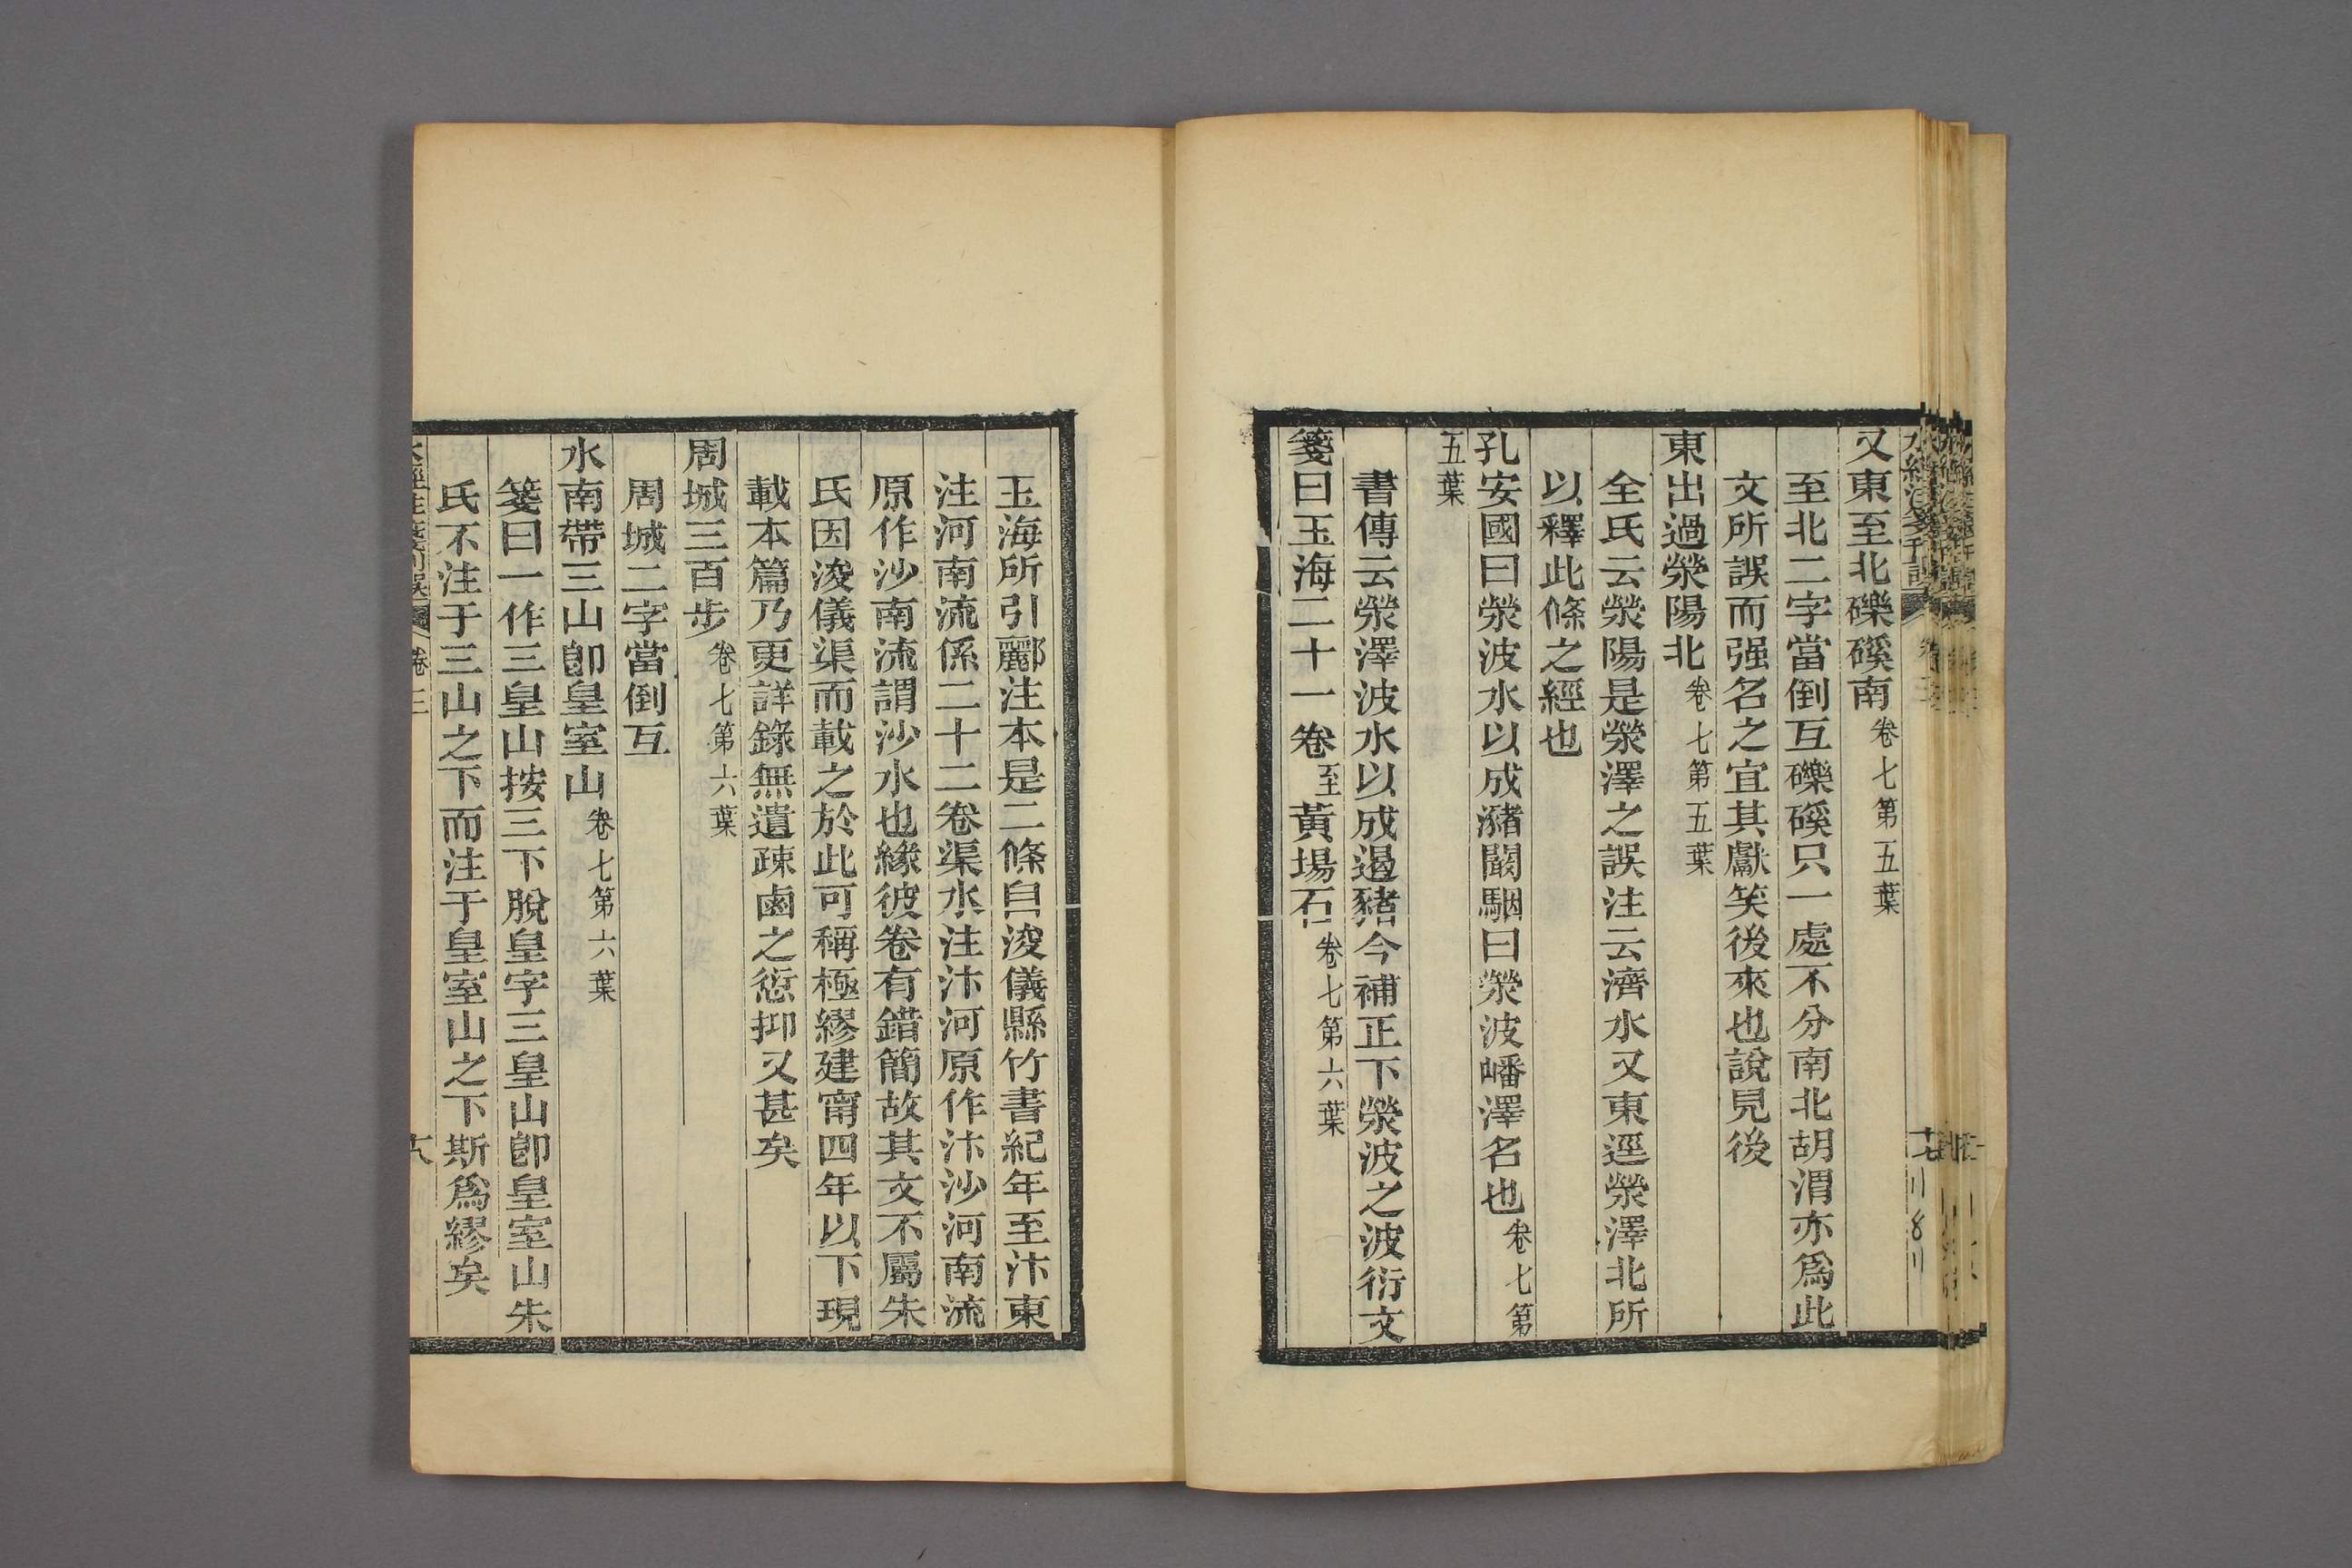 又東至北礫磎南卷七第五葉
至北二字當倒互礫磎只一處不分南北胡渭亦爲此
文所誤而强名之宜其獻笑後來也說見後
東出過滎陽北卷七第五葉
全氏云滎陽是滎澤之誤注云濟水又東逕滎澤北所
以釋此條之經也
孔安國曰滎波水以成瀦闞駰曰滎波嶓澤名也卷七第
五葉
書傳云滎澤波水以成遏豬今補正下滎波之波衍文
箋曰玉海二十一卷至黃場石卷七第六葉
玉海所引酈注本是二條自浚儀縣竹書紀年至汴東
注河南流係二十二卷渠水注汴河原作汴沙河南流
原作沙南流謂沙水也緣彼卷有錯簡故其文不屬朱
氏因浚儀渠而載之於此可稱極繆建甯四年以下現
載本篇乃更詳錄無遺疎鹵之愆抑又甚矣
周城三百步卷七第六葉
周城二字當倒互
水南帶三山卽皇室山卷七第六葉
箋曰一作三皇山按三下脫皇字三皇山卽皇室山朱
氏不注于三山之下而注于皇室山之下斯爲繆矣